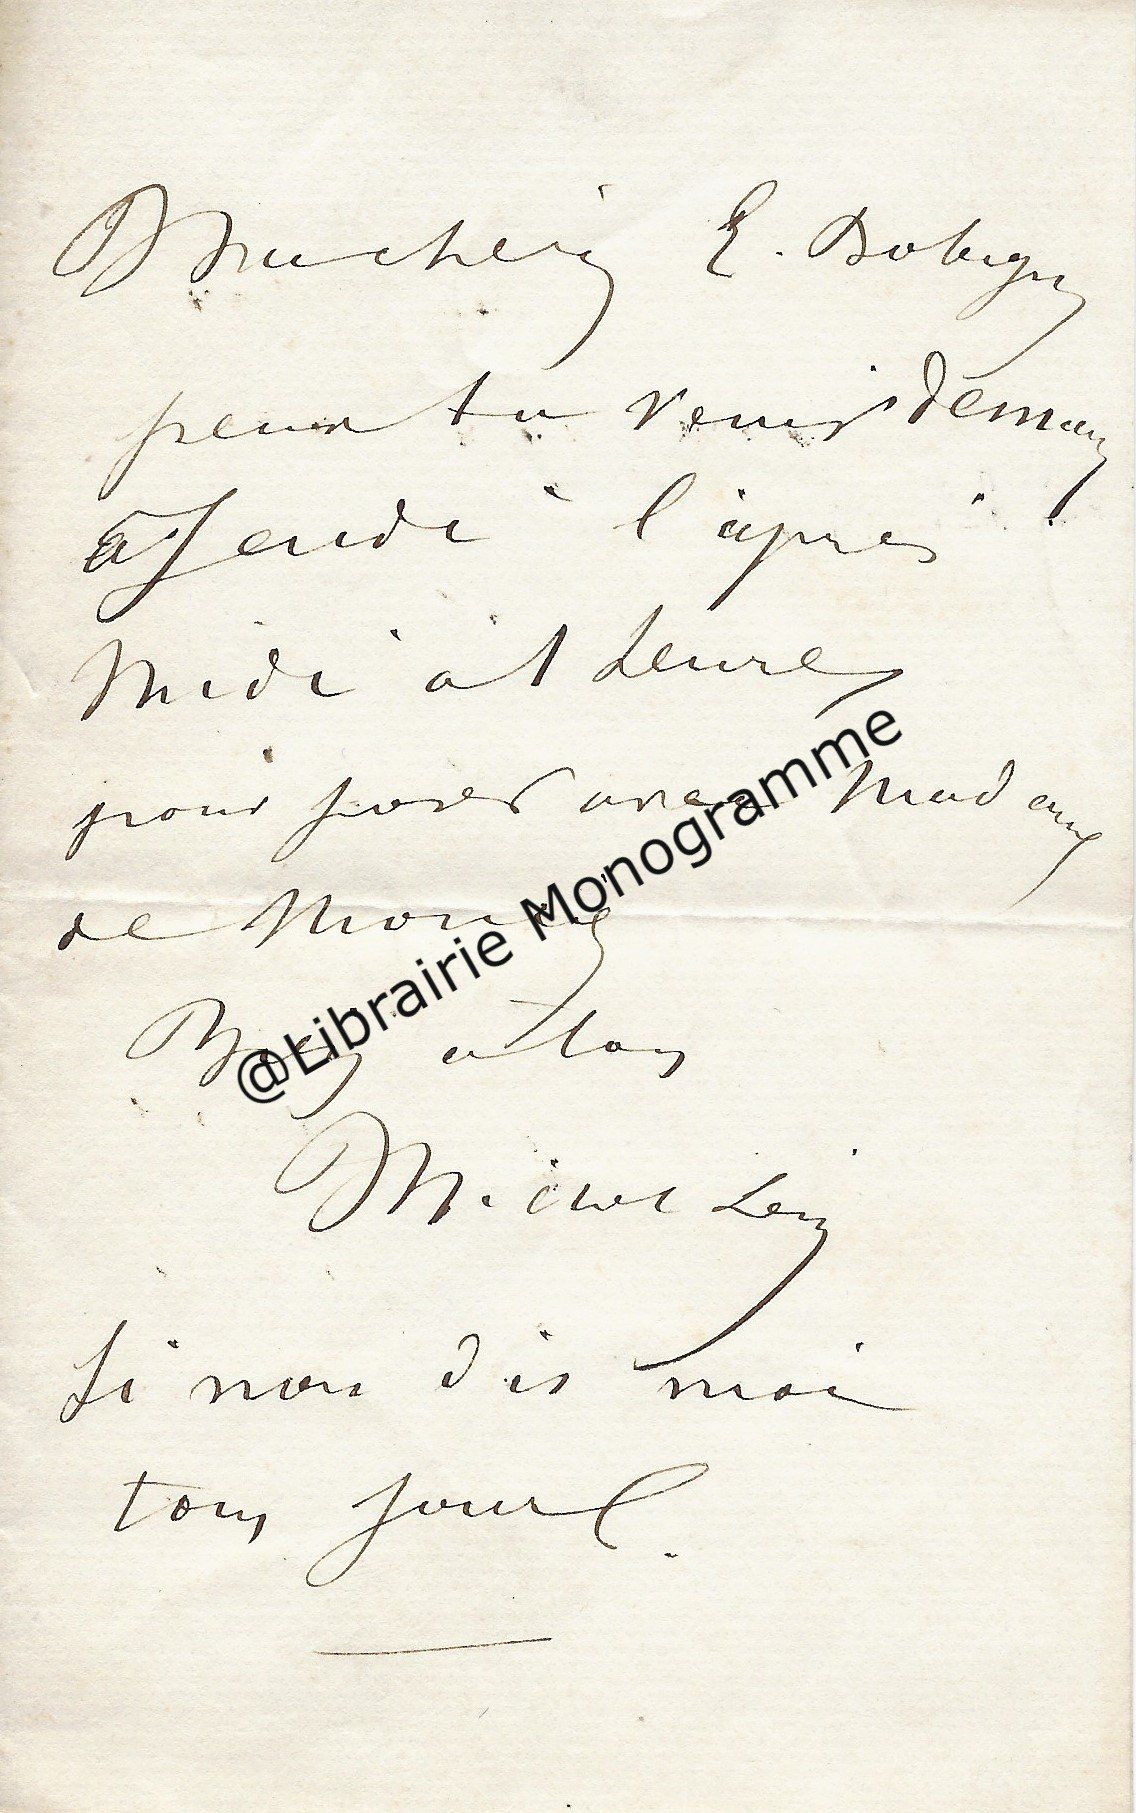 Mon cher E. Bobigny
peux tu venir demain
à Jeudi l'après
Midi à 1 heure
pour poser avec Madame
de Mor
Bien à toi
Michel Lévy
Si non dis moi
ton jour
@Librairie Monogramme